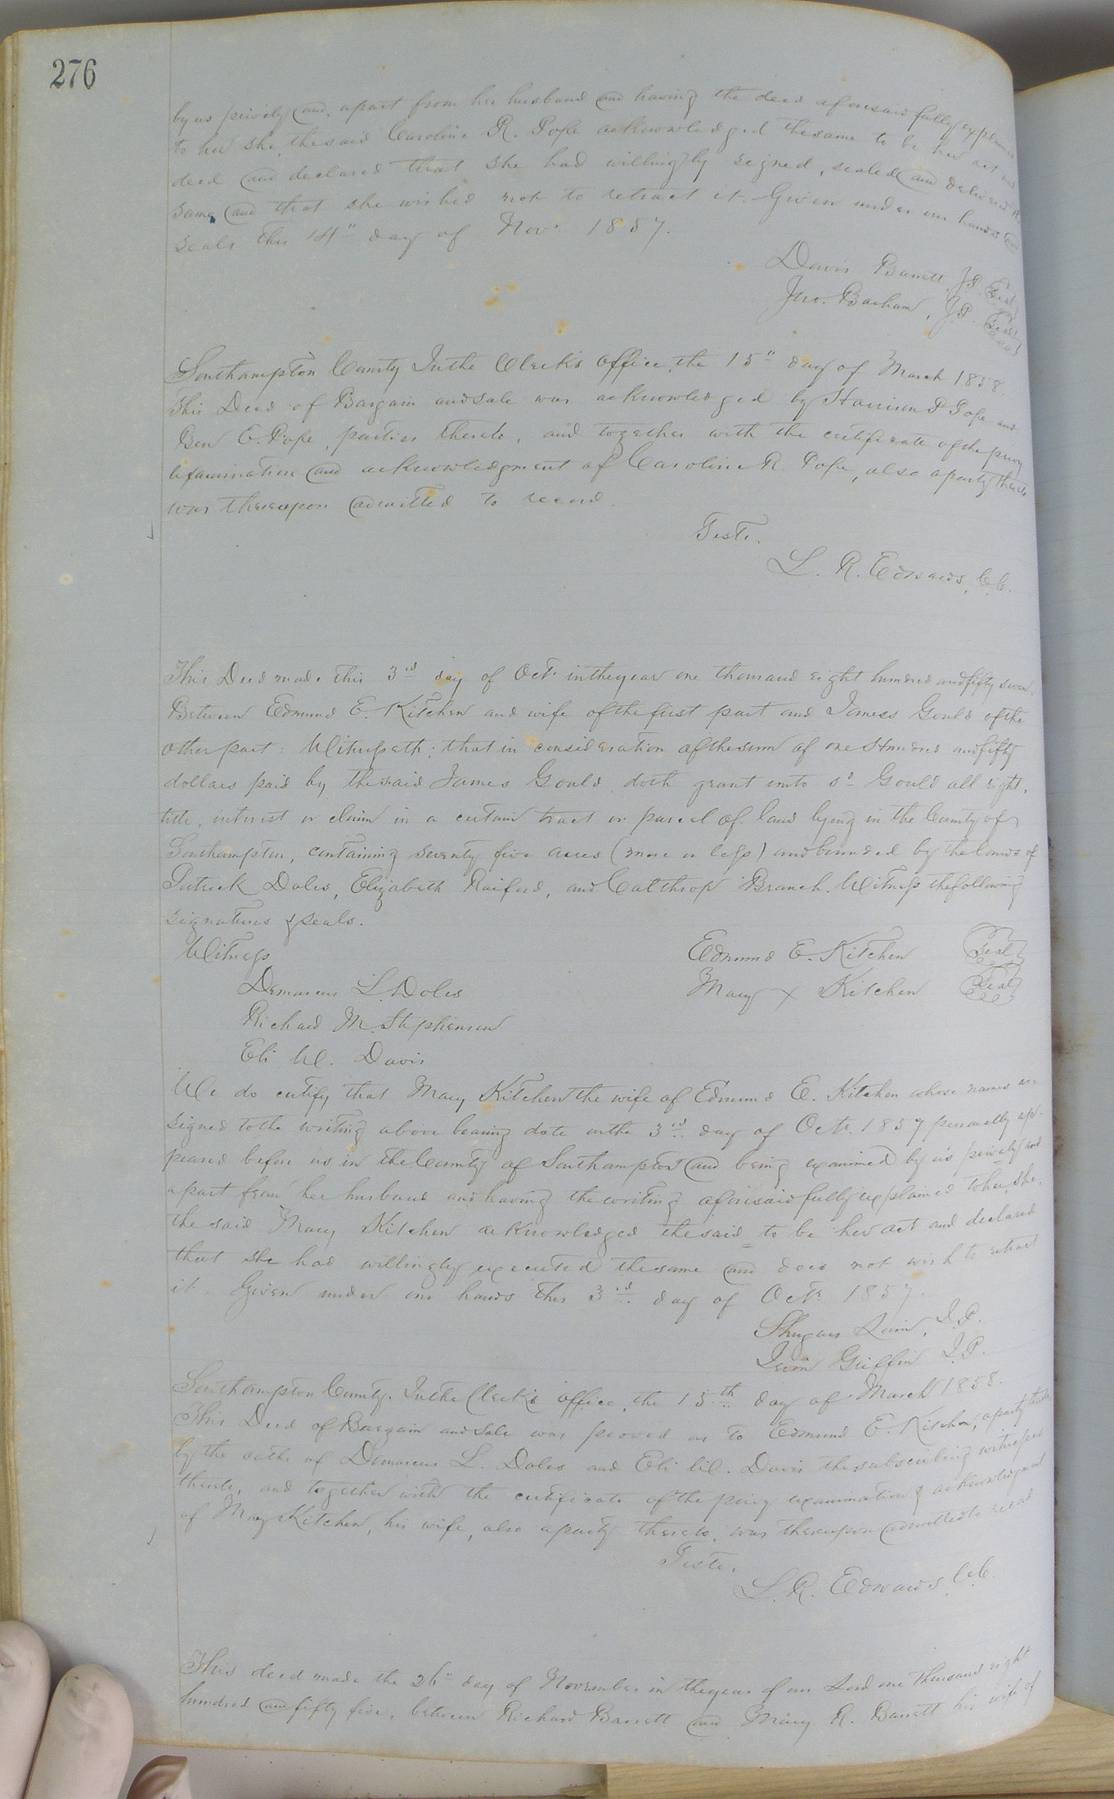 276
by us privily and apart from her husband and having the deed aforesaid fully explained
to her she the said Caroline R. Pope acknowledged the same to be her act and
deed and declared that she had willingly signed, sealed and delivered the
same, and that she wished not to retract it. Given under our hands and
seals this 14" day of Nov. 1857.
Davis Barrett, J.P. Seal
Jno. Barham, J.P. Seal
Southampton County In the Clerk's office, the 15" day of March 1858.
This Deed of Bargain and sale was acknowledged by Harrison P Pope and
Ben C. Pope, parties thereto, and together with the certificate of the privy
examination and acknowledgment of Caroline R. Pope, also a party thereto
was thereupon admitted to record.
Teste.
L. R. Edwards, C.C.
This Deed made this 3rd day of Oct. in the year one thousand eight hundred and fifty seven.
Between Edmund E. Kitchen and wife of the first part and James Gould of the
other part: Witnesseth: that in consideration of the sum of one Hundred and fifty
dollars paid by the said James Gould, doth grant unto sd Gould all right,
title, interest or claim in a certain tract or parcel of land lying in the County of
Southampton, containing seventy five acres (more or less) and bounded by the lands of
Patrick Doles, Elizabeth Raiford, and Calthrop Branch. Witness the following
signatures & seals.
Witness
Edmund E. Kitchen Seal
Demarcus L. Doles
Mary X Kitchen Seal
Richard M. Stephenson
Eli W. Davis
We do certify that Mary Kitchen the wife of Edmund E. Kitchen whose names are
signed to the writing above bearing date on the 3rd day of Oct. 1857 personally ap-
peared before us in the County of Southampton and being examined by us privily and
apart from her husband and having the writing aforesaid fully explained to her, she,
the said Mary Kitchen acknowledged the said to be her act and declared
that she had willingly executed the same and does not wish to retract
it. Given under our hands this 3rd day of Oct. 1857.
J.P.
Griffin J.P.
Southampton County. In the Clerk's office, the 15th day of March 1858.
This Deed of Bargain and sale was proved as to Edmund E. Kitchen, a party thereto
by the oaths of Demarcus L. Doles and Eli W. Davis the subscribing witnesses
thereto, and together with the certificate of the privy examination & acknowledgment
of Mary Kitchen, his wife, also a party thereto, was thereupon admitted to record
Teste.
L. R. Edwards C.C.
This deed made the 26" day of November in the year of our Lord one thousand eight
hundred and fifty five, between Richard Barrett and Mary R. Barrett his wife of